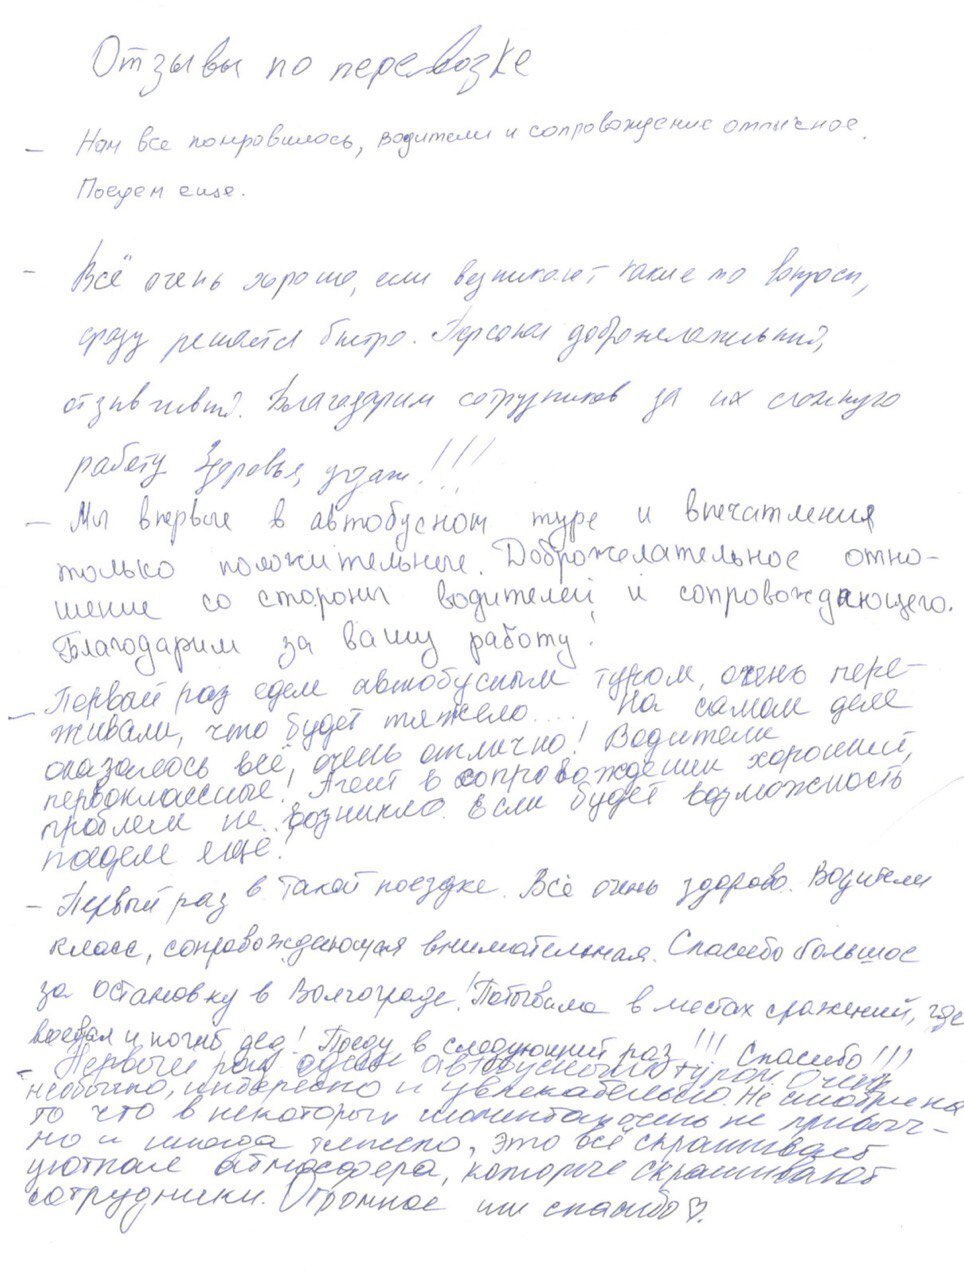 Отзывы по перевозке
- Нам все понравилось, водители и сопровождение отличное.
Поедем еще.
- Всё очень хорошо, если возникают какие то вопросы,
сразу решается быстро. Персонал доброжелательный,
отзывчивый. Благодарим сотрудников за их сложную
работу Здоровья, удачи!!!
- Мы впервые в автобусном туре и впечатления
только положительные. Доброжелательное отно-
шение со стороны водителей и сопровождающего.
Благодарим за вашу работу!
- Первый раз едем автобусным туром, очень пере-
живали, что будет тяжело.... На самом деле
оказалось всё, очень отлично! Водители
первоклассные! Агент в сопровождении хороший,
проблем не возникло. Если будет возможность
поедем ещё!
- Первый раз в такой поездке. Всё очень здорово. Водители
класс, сопровождающая внимательная. Спасибо большое
за остановку в Волгограде! Побывала в местах сражений, где
воевал и погиб дед! Поеду в следующий раз!!! Спасибо!!!
- Первый раз едем автобусным туром очень
необычно, интересно и увлекательно. Не смотря на
то что в некоторых моментах очень не привыч-
но и иногда тяжело, это всё скрашивает
уютная атмосфера, которые скрашивают
сотрудники. Огромное им спасибо♡.